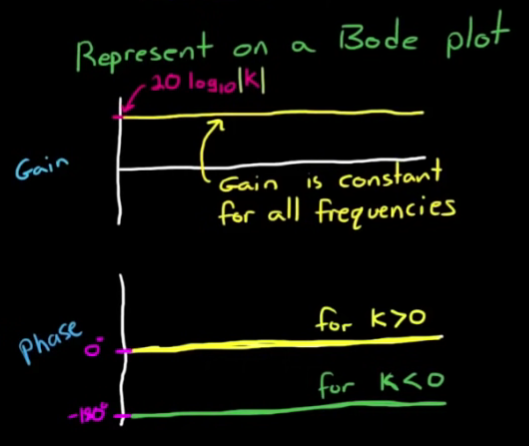 Represent on a Bode plot
20 log₁₀|K|
Gain
Gain is constant
for all frequencies
Phase
for K>0
0°
for K<0
-180°